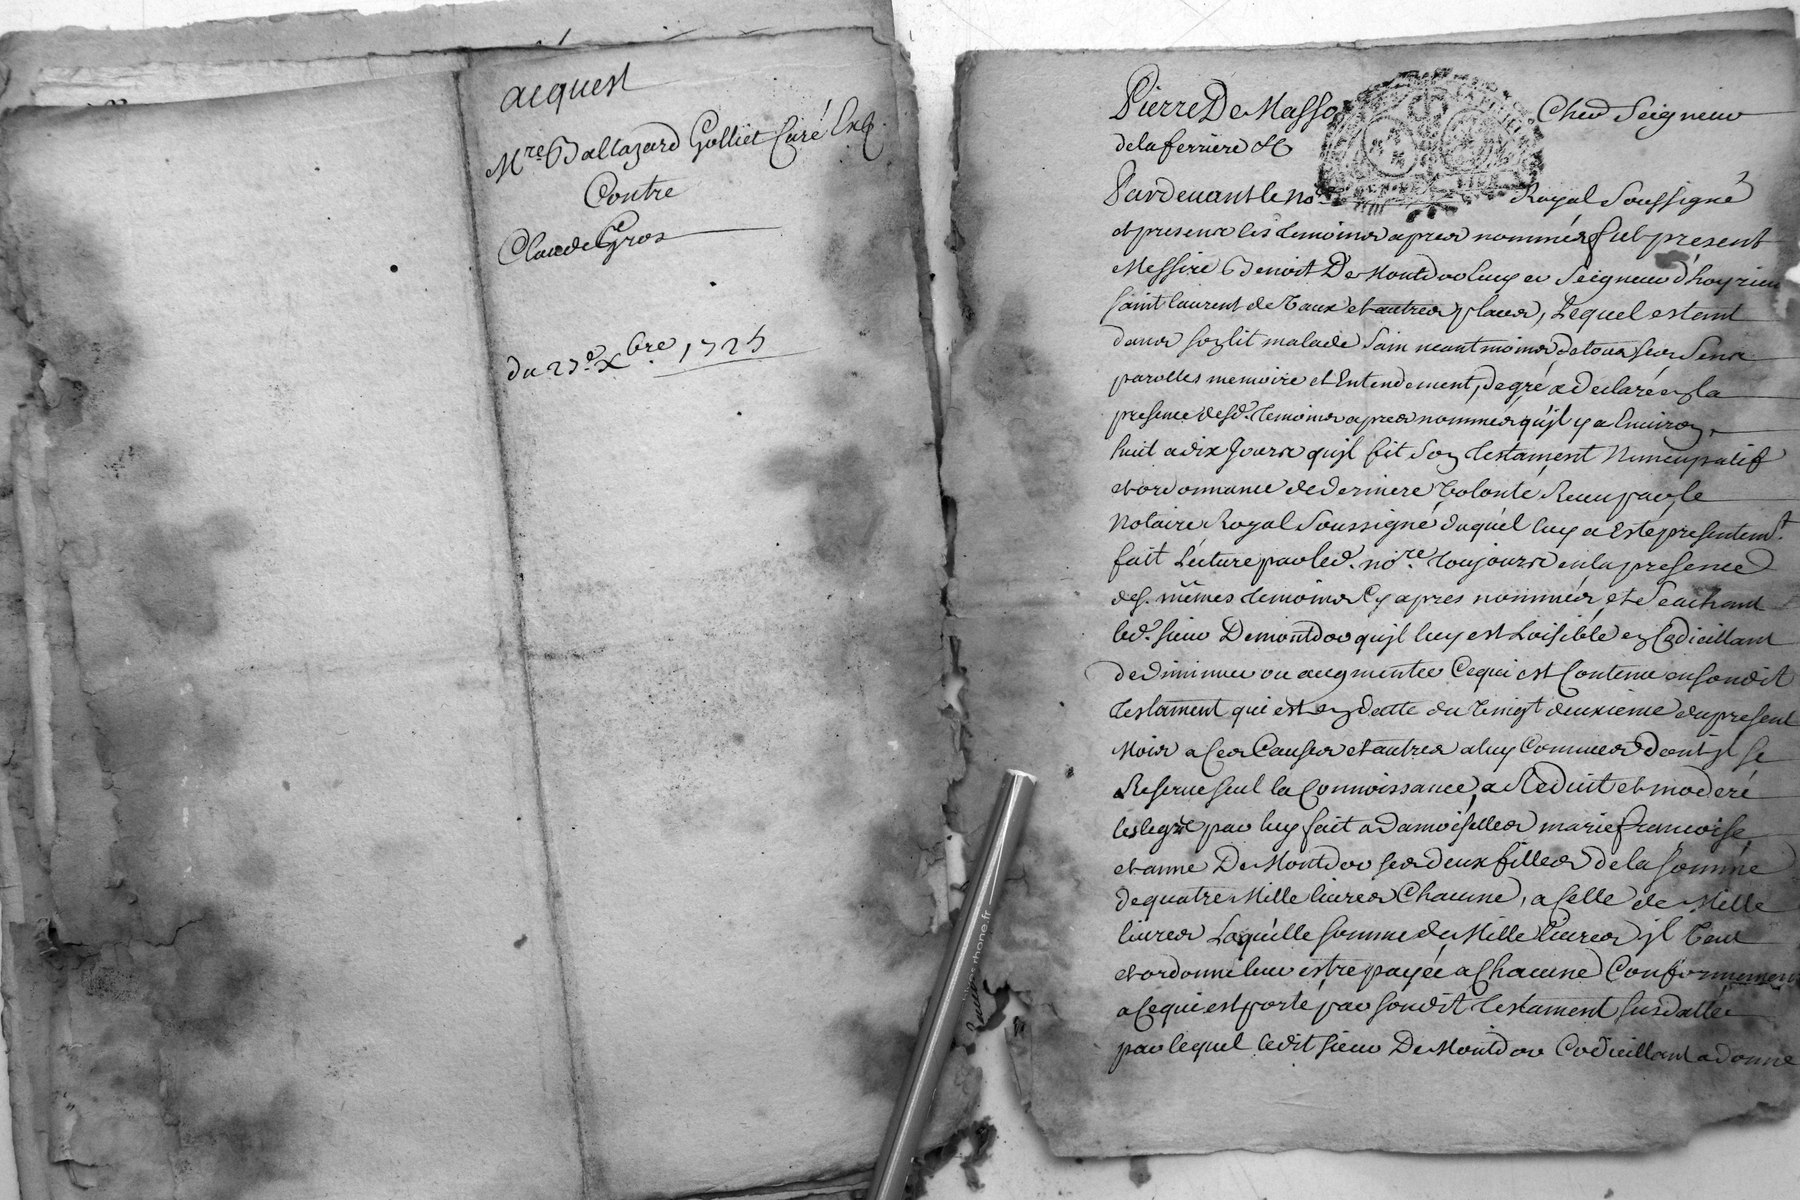 acquest
Mre. Baltazard Golliet Curé
Contre
Claude Gros
du 27e. Xbre 1725
Pierre De Masso Cher Seigneur
de la ferriere &c
Pardevant le no.re Royal Soussigné
et presence les temoins apres nommés fut present
Messire Benoit De Montdor Seigneur d'hoyrieu
saint laurent de Vaux et autres places, Lequel estant
dans son lit malade Sain neantmoins de tous ses Sens
parolles memoire et Entendement, de gré a declaré en la
presence desd. temoins apres nommés qu'jl y a Environ
huit a dix Jours qu'jl fit son testament Nuncupatif
et ordonnance de derniere volonté Receu par le
Notaire Royal Soussigné, duquel luy a Esté presentemt.
fait Lecture par led. no.re toujours en la presence
des. mêmes temoins Cy apres nommés, et Seachant
led. sieur Demontdor qu'jl luy est Loisible en Codicillant
de diminuer ou augmenter Ce qui est Contenu en son dit
testament qui est en datte du Vingt deuxieme du present
Mois a ces Causes et autres a luy Connues Dont jl se
Reserve seul la Connoissance, a Reduit et moderé
les legts par luy fait a Damoiselles marie francoise
et anne De Montdor ses deux filles de la somme
de quatre Mille livres Chacune, a Celle de Mille
livres Laquelle somme de Mille livres jl Veut
et ordonne leur estre payée a Chacune Conformement
a Ce qui est porté par son dit testament susdatté
par lequel ledit sieur De Montdor Codicillant a donné
rhone.fr